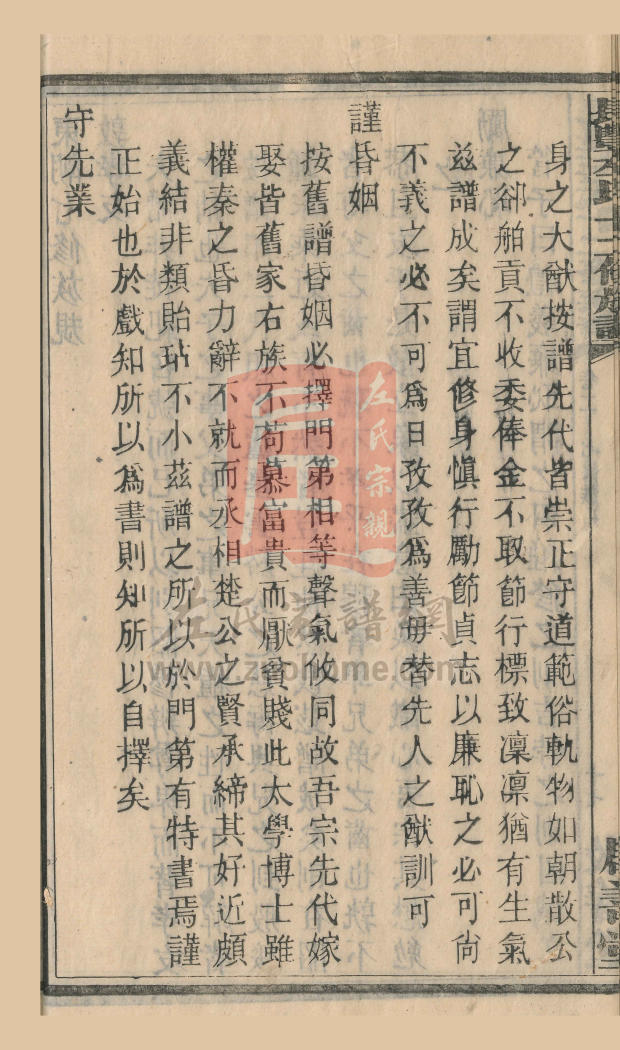 身之大猷按譜先代皆崇正守道範俗軌物如朝散公
之卻舶貢不收委俸金不取節行標致凜凜猶有生氣
兹譜成矣謂宜修身慎行勵節貞志以廉恥之必可尙
不義之必不可爲日孜孜爲善毋替先人之猷訓可
謹昏姻
按舊譜昏姻必擇門第相等聲氣攸同故吾宗先代嫁
娶皆舊家右族不苟慕富貴而厭貧賤此太學博士雖
權秦之昏力辭不就而丞相楚公之賢承締其好近頗
義結非類貽玷不小茲譜之所以於門第有特書焉謹
正始也於戲知所以爲書則知所以自擇矣
守先業
左氏宗親
左氏家譜網